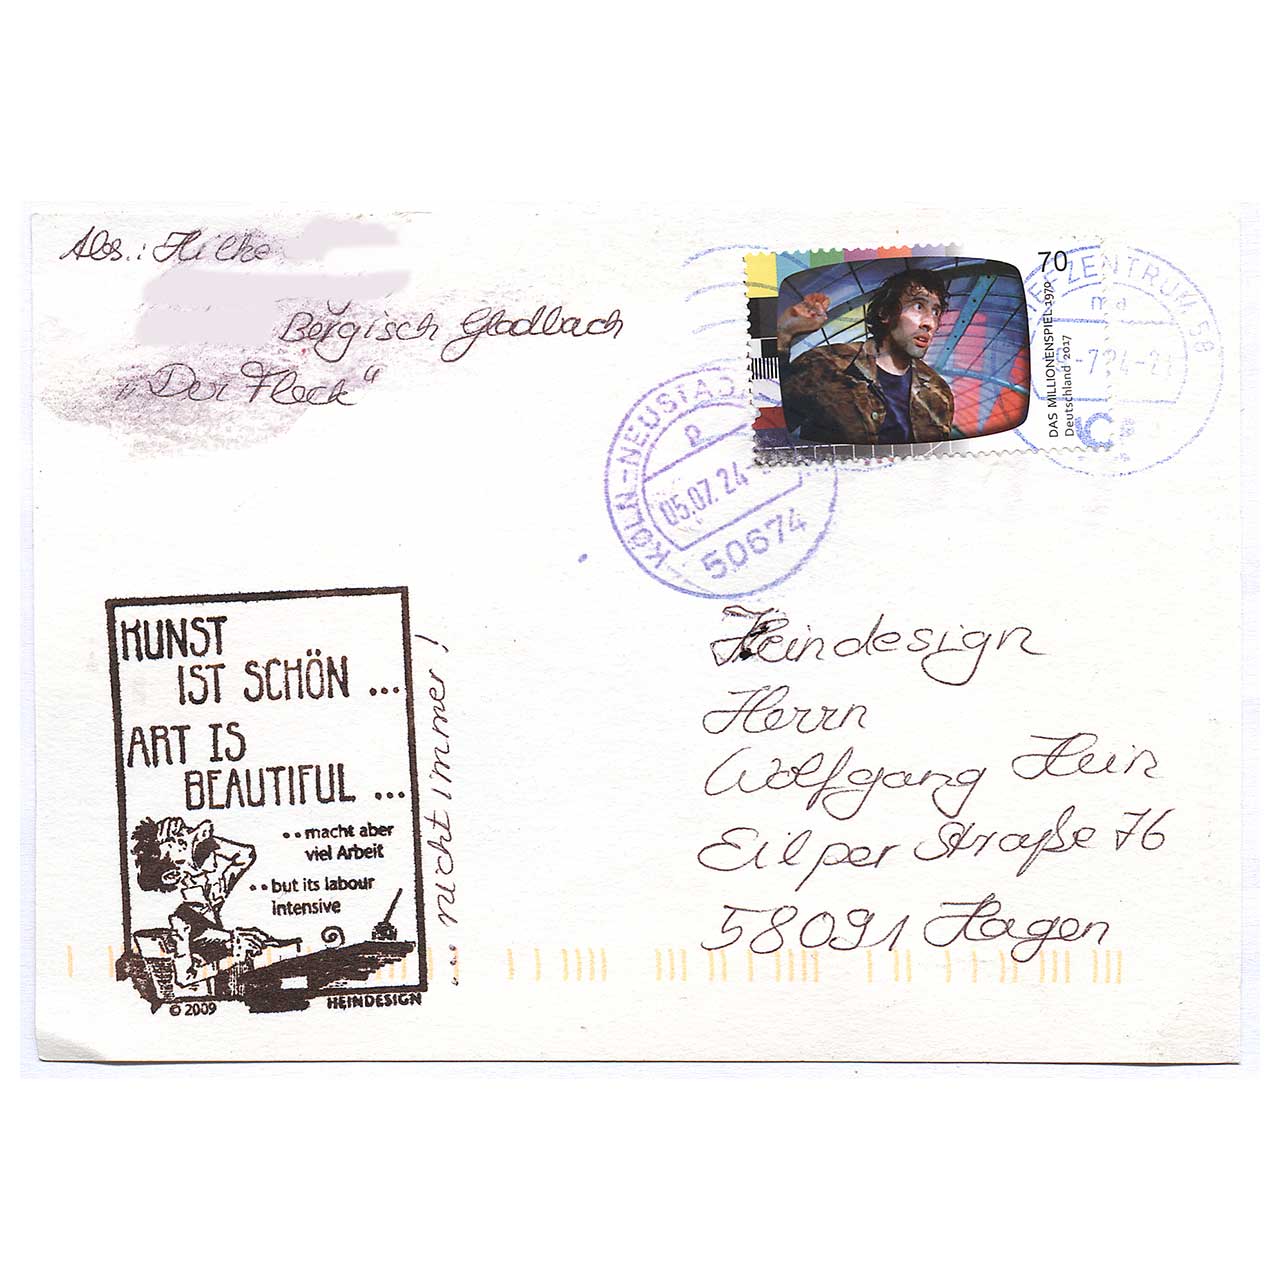 Abs.: Hilke
Bergisch Gladbach
„Der Fleck“
70
DAS MILLIONENSPIEL 1970
Deutschland 2017
EFZENTRUM 58
md
-7.24-21
KÖLN-NEUSTADT
p
05.07.24
50674
Heindesign
Herrn
Wolfgang Hein
Eilper Straße 76
58091 Hagen
KUNST
IST SCHÖN ...
ART IS
BEAUTIFUL ...
..macht aber
viel Arbeit
..but its labour
intensive
© 2009 HEINDESIGN
... nicht immer!